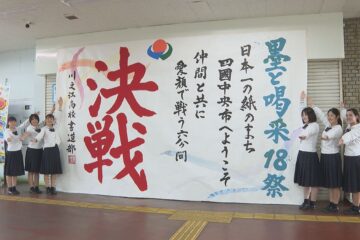 墨と喝采18祭
日本一の紙のまち
四國中央市へようこそ
仲間と共に
愛顔で戦う六分間
決戦
川之江高校書道部